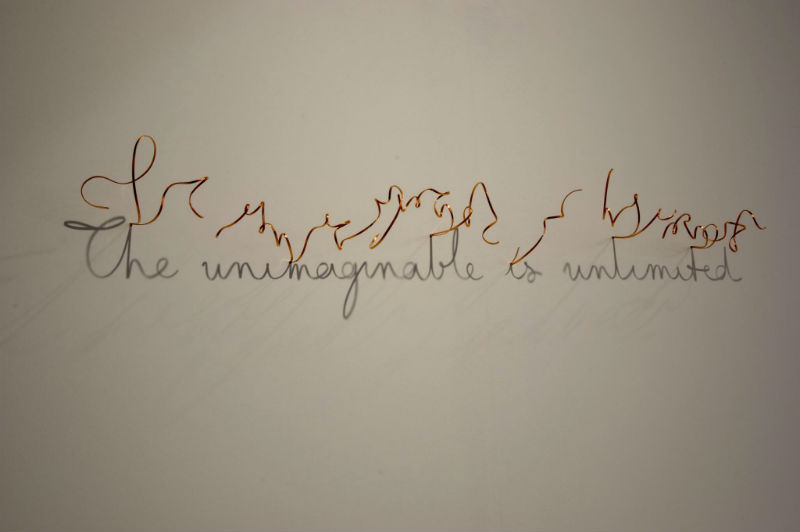 The unimaginable is unlimited